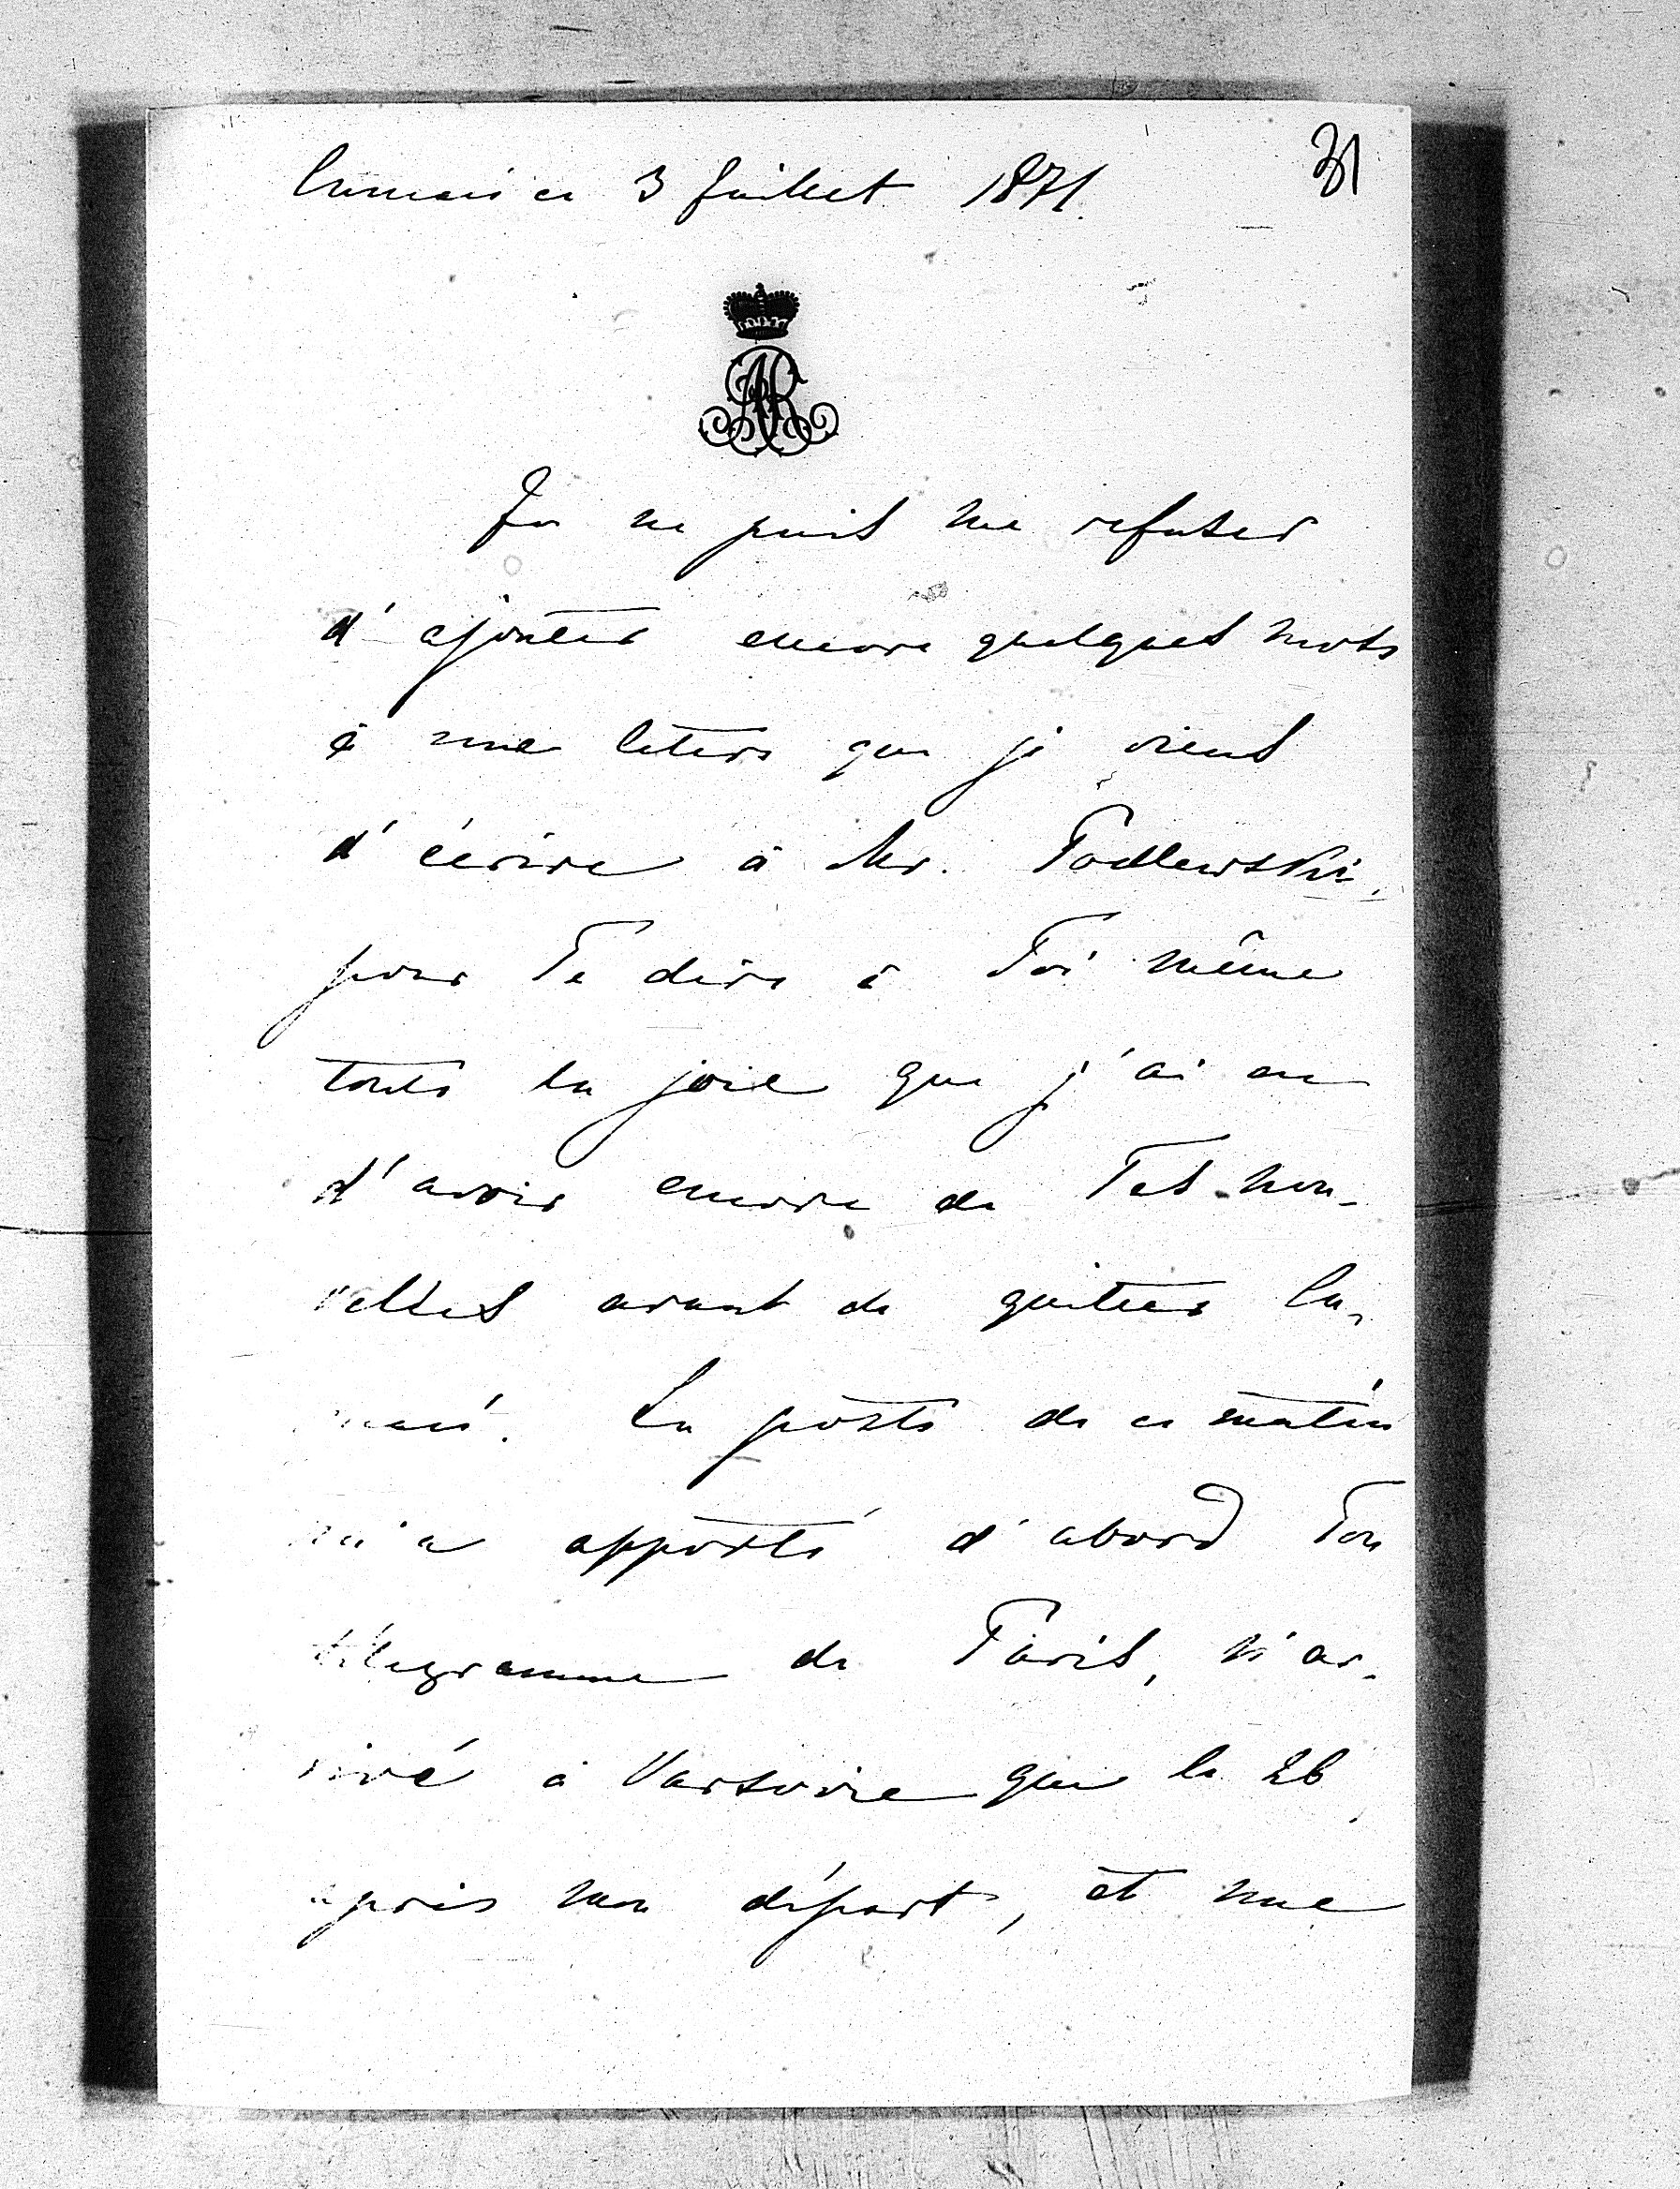 Cumais ce 3 Juillet 1871.
31
AR
Je ne puis me refuser
d'ajouter encore quelques mots
à une lettre que je viens
d'écrire à Mr. Podlewski,
pour Te dire à Toi même
toute la joie que j'ai eue
d'avoir encore de Tes nou-
velles avant de quitter
La poste de ce matin
m'a apporté d'abord Ton
télegramme de Paris, n'ar-
rivé à Varsovie que le 26,
après mon départ, et une